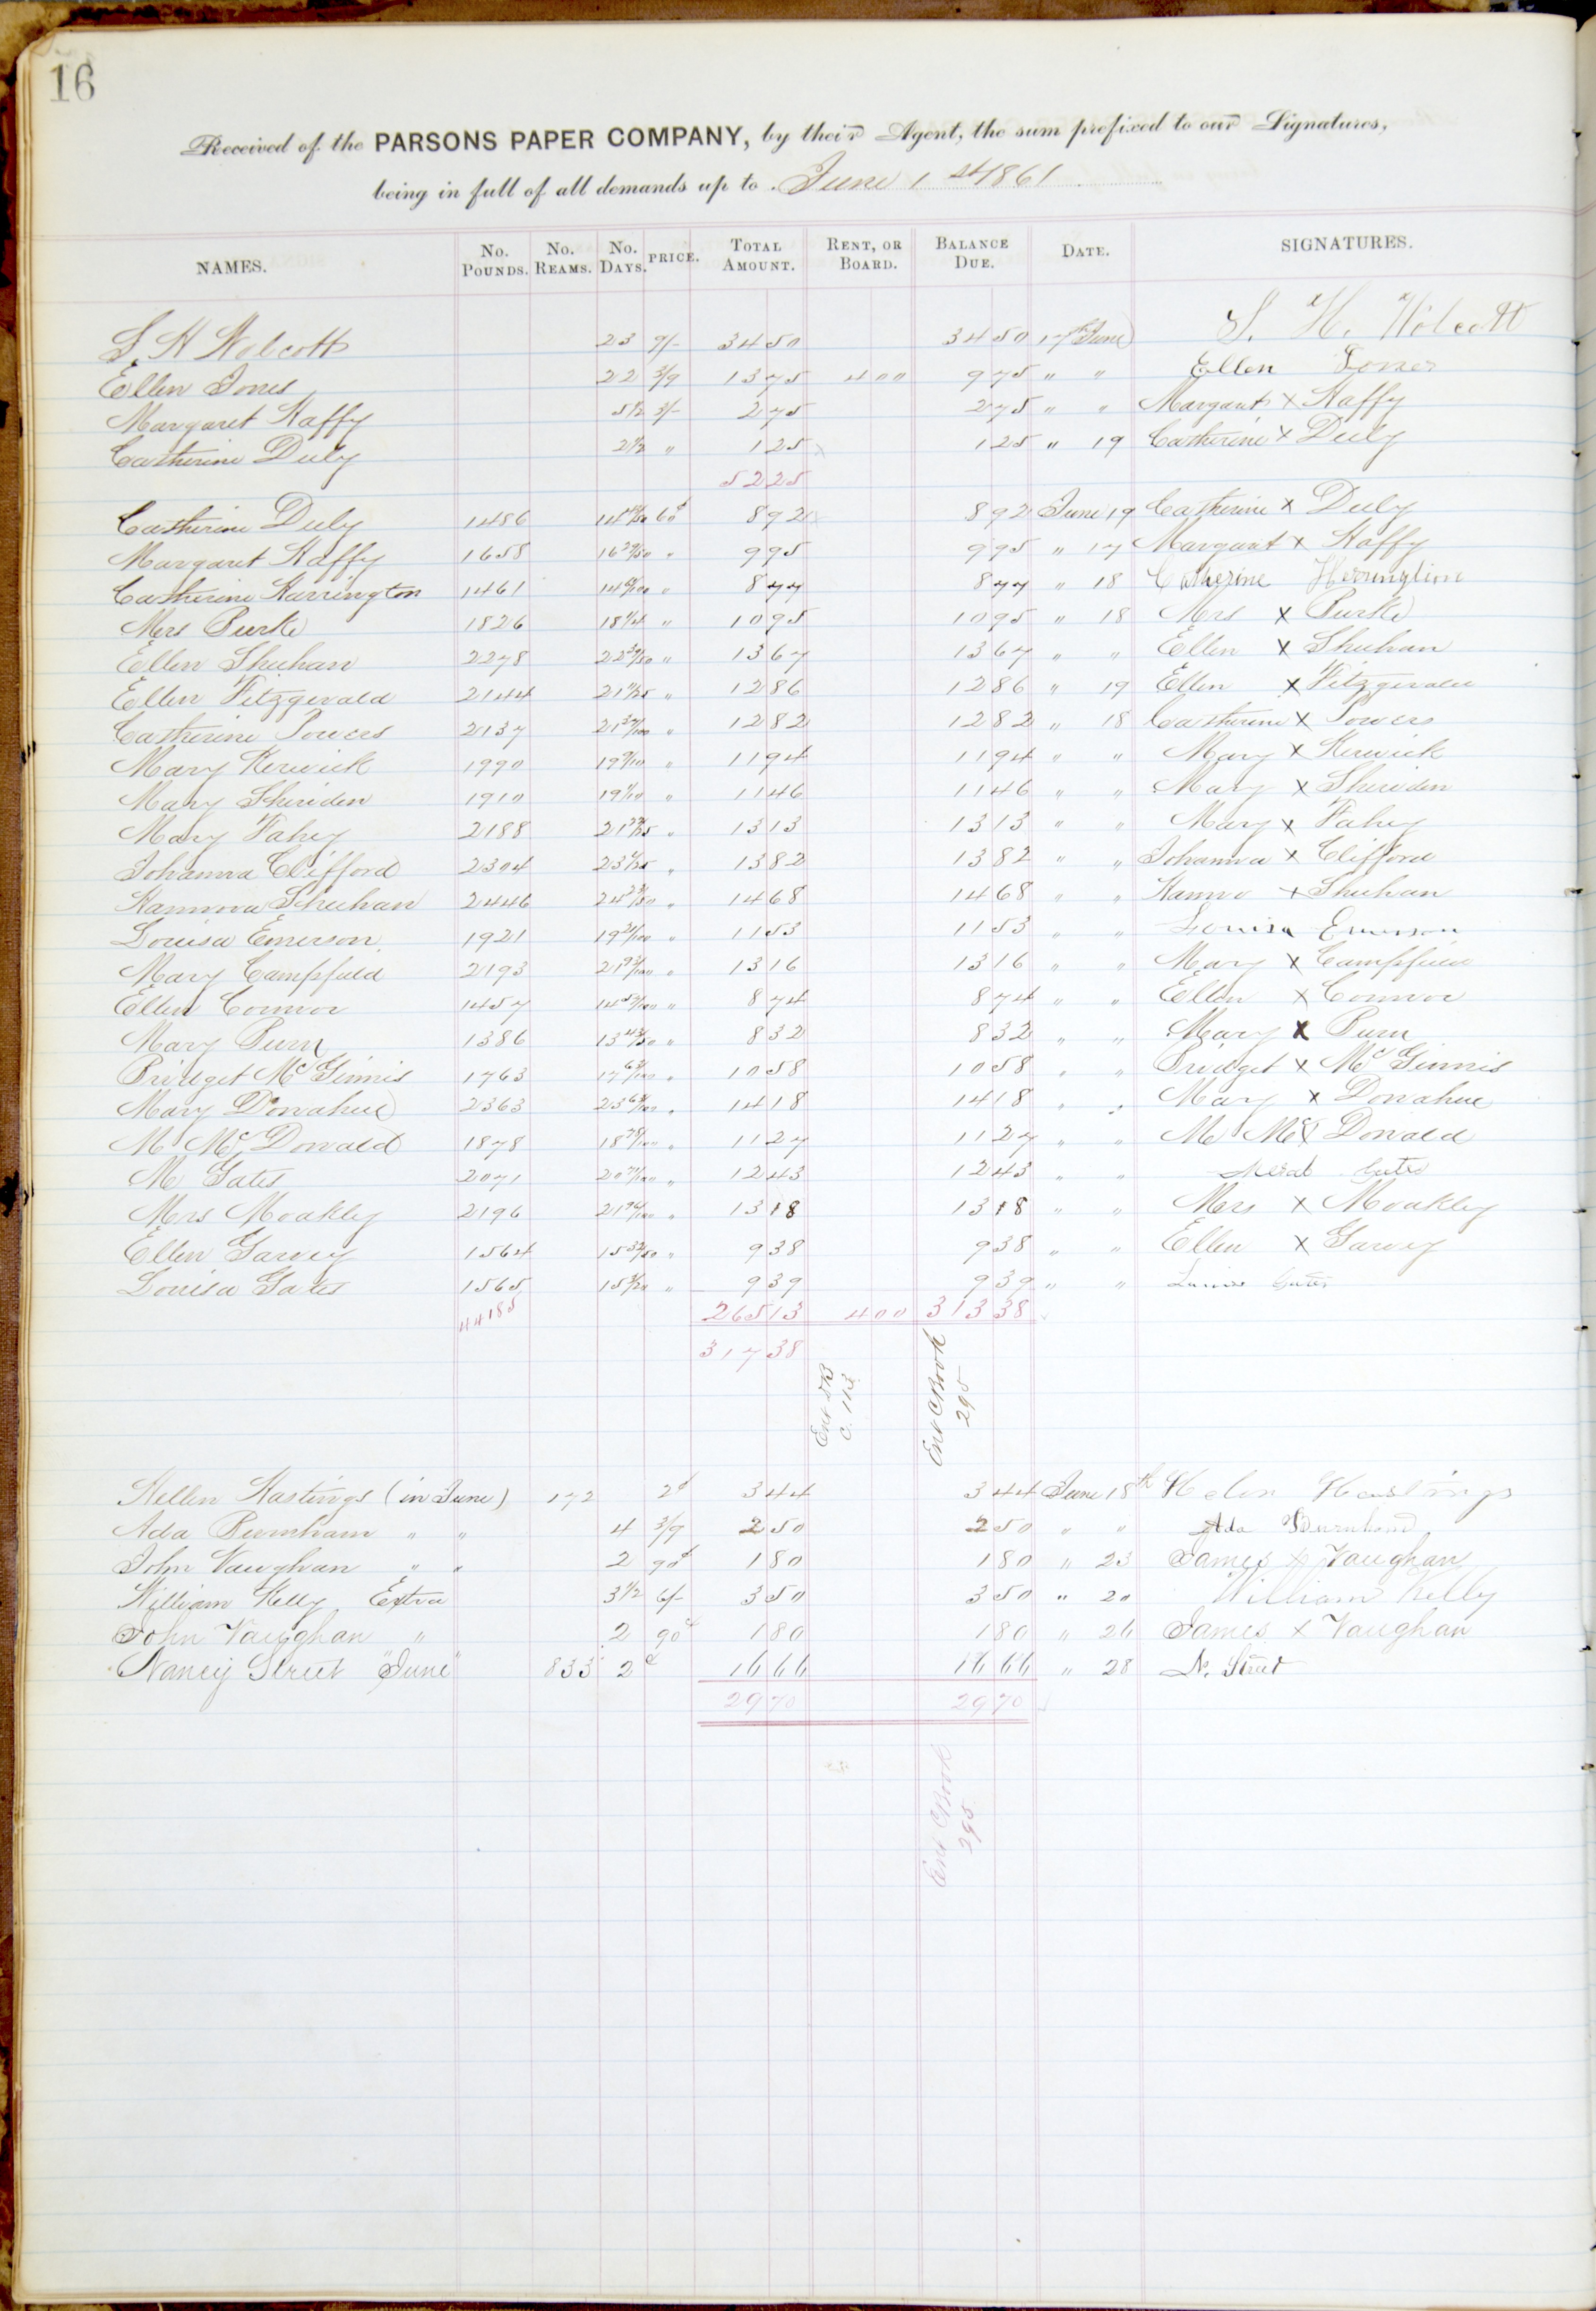 16
Received of the PARSONS PAPER COMPANY, by their Agent, the sum prefixed to our Signatures,
being in full of all demands up to June 1st 1861
NAMES. No. Pounds. No. Reams. No. Days. PRICE. Total Amount. Rent, or Board. Balance Due. Date. SIGNATURES.
S. H. Wolcott 23 9/- 34 50 34 50 17th June S. H. Wolcott
Ellen Jones 22 3/9 13 75 4 00 9 75 " " Ellen Jones
Margaret Haffy 5 1/2 3/- 2 75 2 75 " " Margaret X Haffy
Catherine Duly 2 1/2 " 1 25 x 1 25 " 19 Catherine X Duly
52 25
Catherine Duly 1486 14 43/50 60¢ 8 92 x 8 92 June 19 Catherine X Duly
Margaret Haffy 1658 16 29/50 " 9 95 9 95 " 17 Margaret X Haffy
Catherine Harrington 1461 14 61/100 " 8 77 8 77 " 18 Catherine Herrington
Mrs Burke 1826 18 1/4 " 10 95 10 95 " 18 Mrs X Burke
Ellen Shuhan 2278 22 39/50 " 13 67 13 67 " " Ellen X Shuhan
Ellen Fitzgerald 2144 21 11/25 " 12 86 12 86 " 19 Ellen X Fitzgerald
Catherine Powers 2137 21 37/100 " 12 82 12 82 " 18 Catherine X Powers
Mary Kerwick 1990 19 9/10 " 11 94 11 94 " " Mary X Kerwick
Mary Sheriden 1910 19 1/10 " 11 46 11 46 " " Mary X Sheriden
Mary Fahey 2188 21 22/25 " 13 13 13 13 " " Mary X Fahey
Johanna Clifford 2304 23 1/25 " 13 82 13 82 " " Johanna X Clifford
Hannora Shuhan 2446 24 23/50 " 14 68 14 68 " " Hanno X Shuhan
Louisa Emerson 1921 19 21/100 " 11 53 11 53 " " Louisa Emerson
Mary Campfield 2193 21 93/100 " 13 16 13 16 " " Mary X Campfield
Ellen Connor 1457 14 57/100 " 8 74 8 74 " " Ellen X Connor
Mary Burn 1386 13 43/50 " 8 32 8 32 " " Mary X Burn
Bridget McGinnis 1763 17 63/100 " 10 58 10 58 " " Bridget X McGinnis
Mary Donahue 2363 23 63/100 " 14 18 14 18 " " Mary X Donahue
M McDonald 1878 18 78/100 " 11 27 11 27 " " M Mc X Donald
M Gates 2071 20 71/100 " 12 43 12 43 " "
Mrs Moakley 2196 21 96/100 " 13 18 13 18 " " Mrs X Moakley
Ellen Garvey 1564 15 32/50 " 9 38 9 38 " " Ellen X Garvey
Louisa Gates 1565 15 " 9 39 9 39 " " Louisa Gates
44185 265 13 4 00 313 38
317 38
Ent C Book 295
Hellen Hastings (in June) 172 2¢ 3 44 3 44 June 18th Helen Hastings
Ada Burnham " " 4 3/9 2 50 2 50 " " Ada Burnham
John Vaughan " " 2 90¢ 1 80 1 80 " 23 James X Vaughan
William Kelly Extra 3 1/2 6/- 3 50 3 50 " 20 William Kelly
John Vaughan " 2 90¢ 1 80 1 80 " 26 James X Vaughan
Nancy Street "June" 833 2¢ 16 66 16 66 " 28 N. Street
29 70 29 70
Ent C Book 295